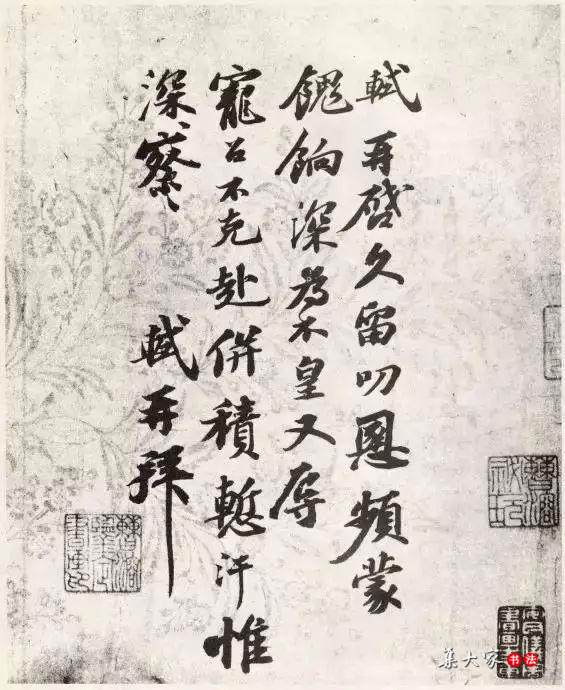 軾再啓久留叨恩頻蒙
餽餉深為不皇又辱
寵召不克赴併積慙汗惟
深察深察
軾再拜
集大家书法